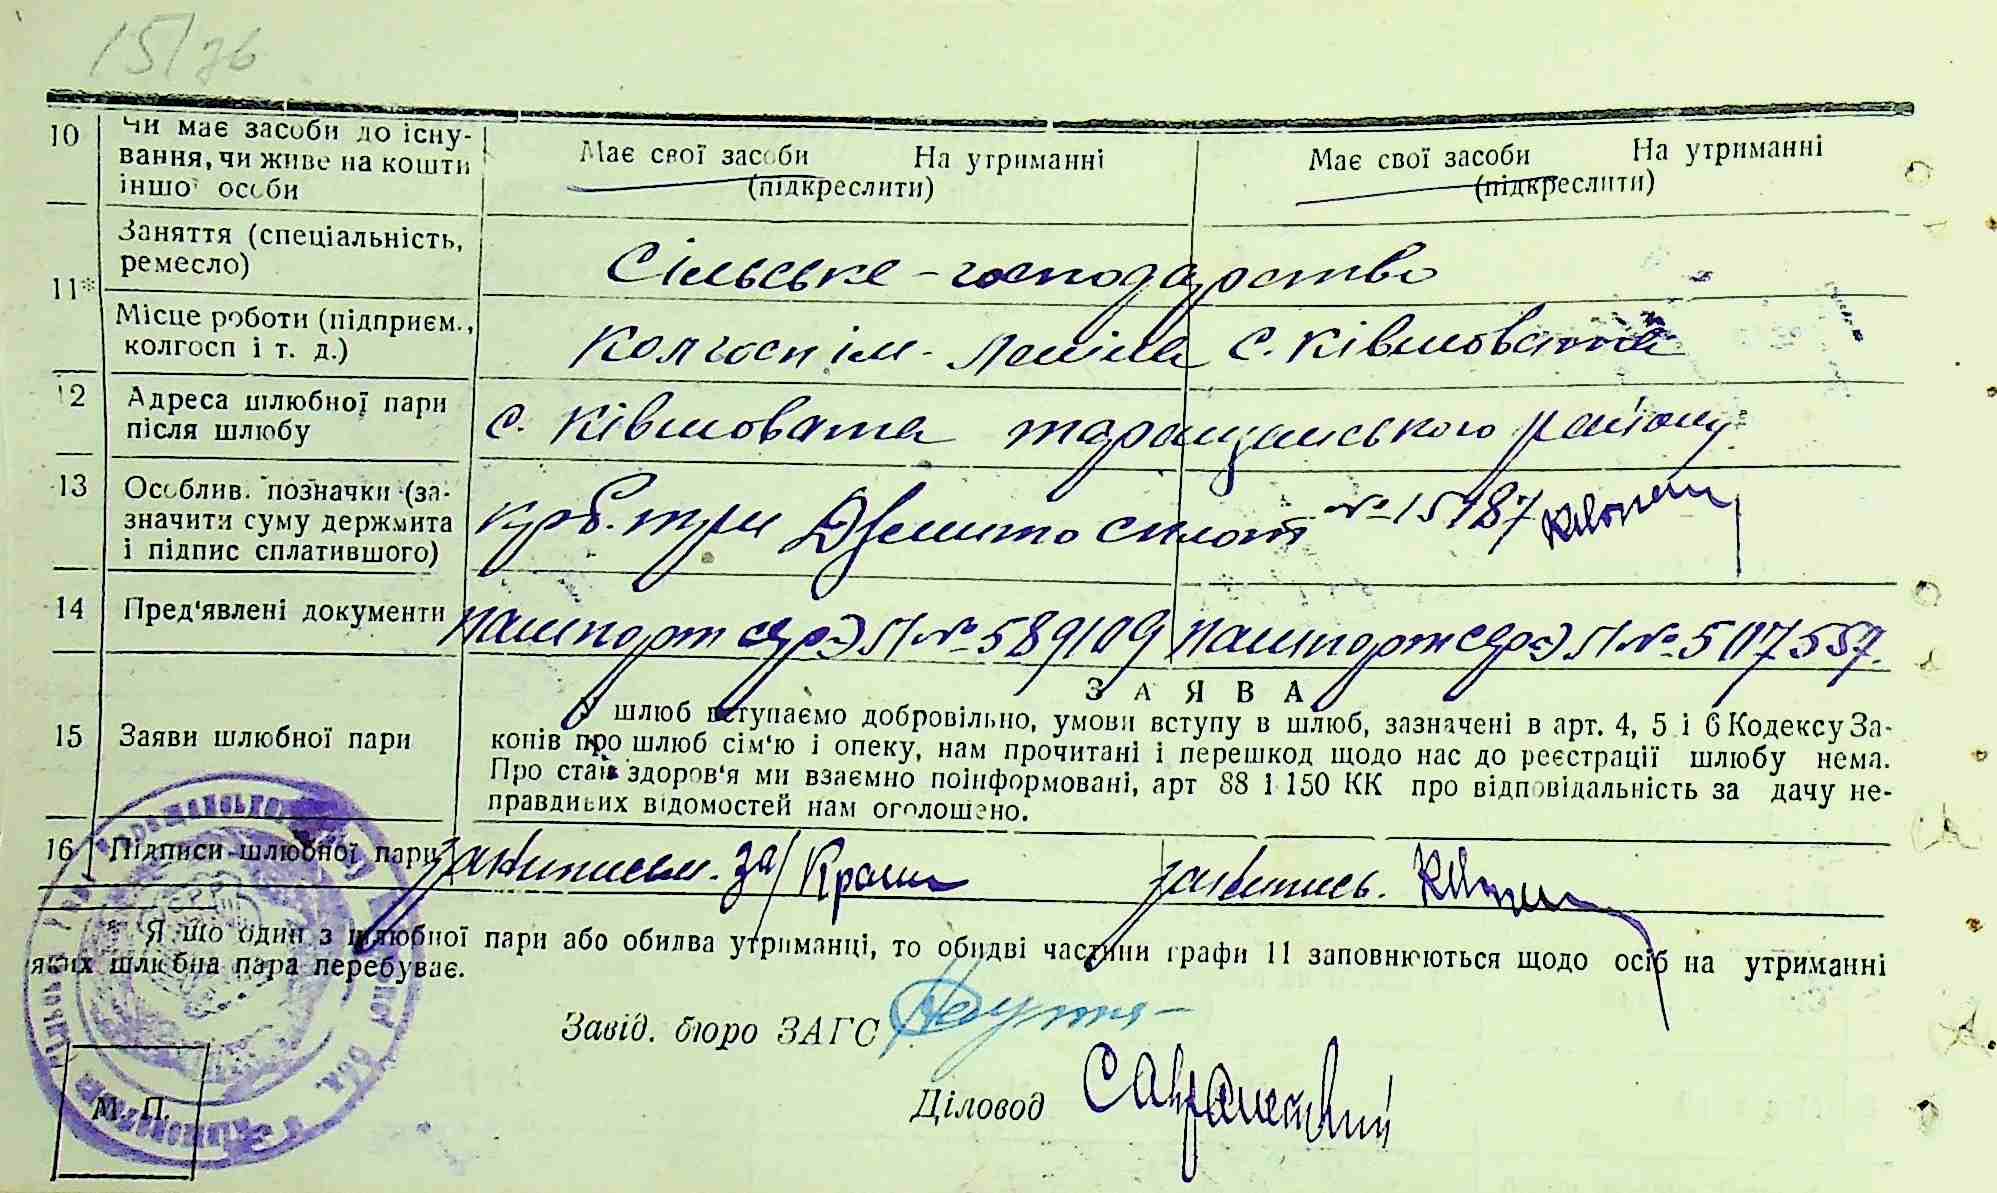 15/76
10 Чи має засоби до існу-
вання, чи живе на кошти
іншої особи
Має свої засоби На утриманні
(підкреслити)
Має свої засоби На утриманні
(підкреслити)
11* Заняття (спеціальність,
ремесло)
Сільське-господарство
Місце роботи (підприєм.,
колгосп і т. д.)
Колгосп ім. Леніна с. Ківшовата
12 Адреса шлюбної пари
після шлюбу
с. Ківшовата таращанського району
13 Особлив. позначки (за-
значити суму держмита
і підпис сплатившого)
крб. три № 15187
14 Пред'явлені документи
Пашпорт № 589109 Пашпорт № 507557.
ЗАЯВА
15 Заяви шлюбної пари
У шлюб вступаємо добровільно, умови вступу в шлюб, зазначені в арт. 4, 5 і 6 Кодексу За-
конів про шлюб сім'ю і опеку, нам прочитані і перешкод щодо нас до реєстрації шлюбу нема.
Про стан здоров'я ми взаємно поінформовані, арт 88 і 150 КК про відповідальність за дачу не-
правдивих відомостей нам оголошено.
16 Підписи шлюбної пари
* Якщо один з шлюбної пари або обидва утриманці, то обидві частини графи 11 заповнюються щодо осіб на утриманні
яких шлюбна пара перебуває.
Завід. бюро ЗАГС
Діловод
М. П.